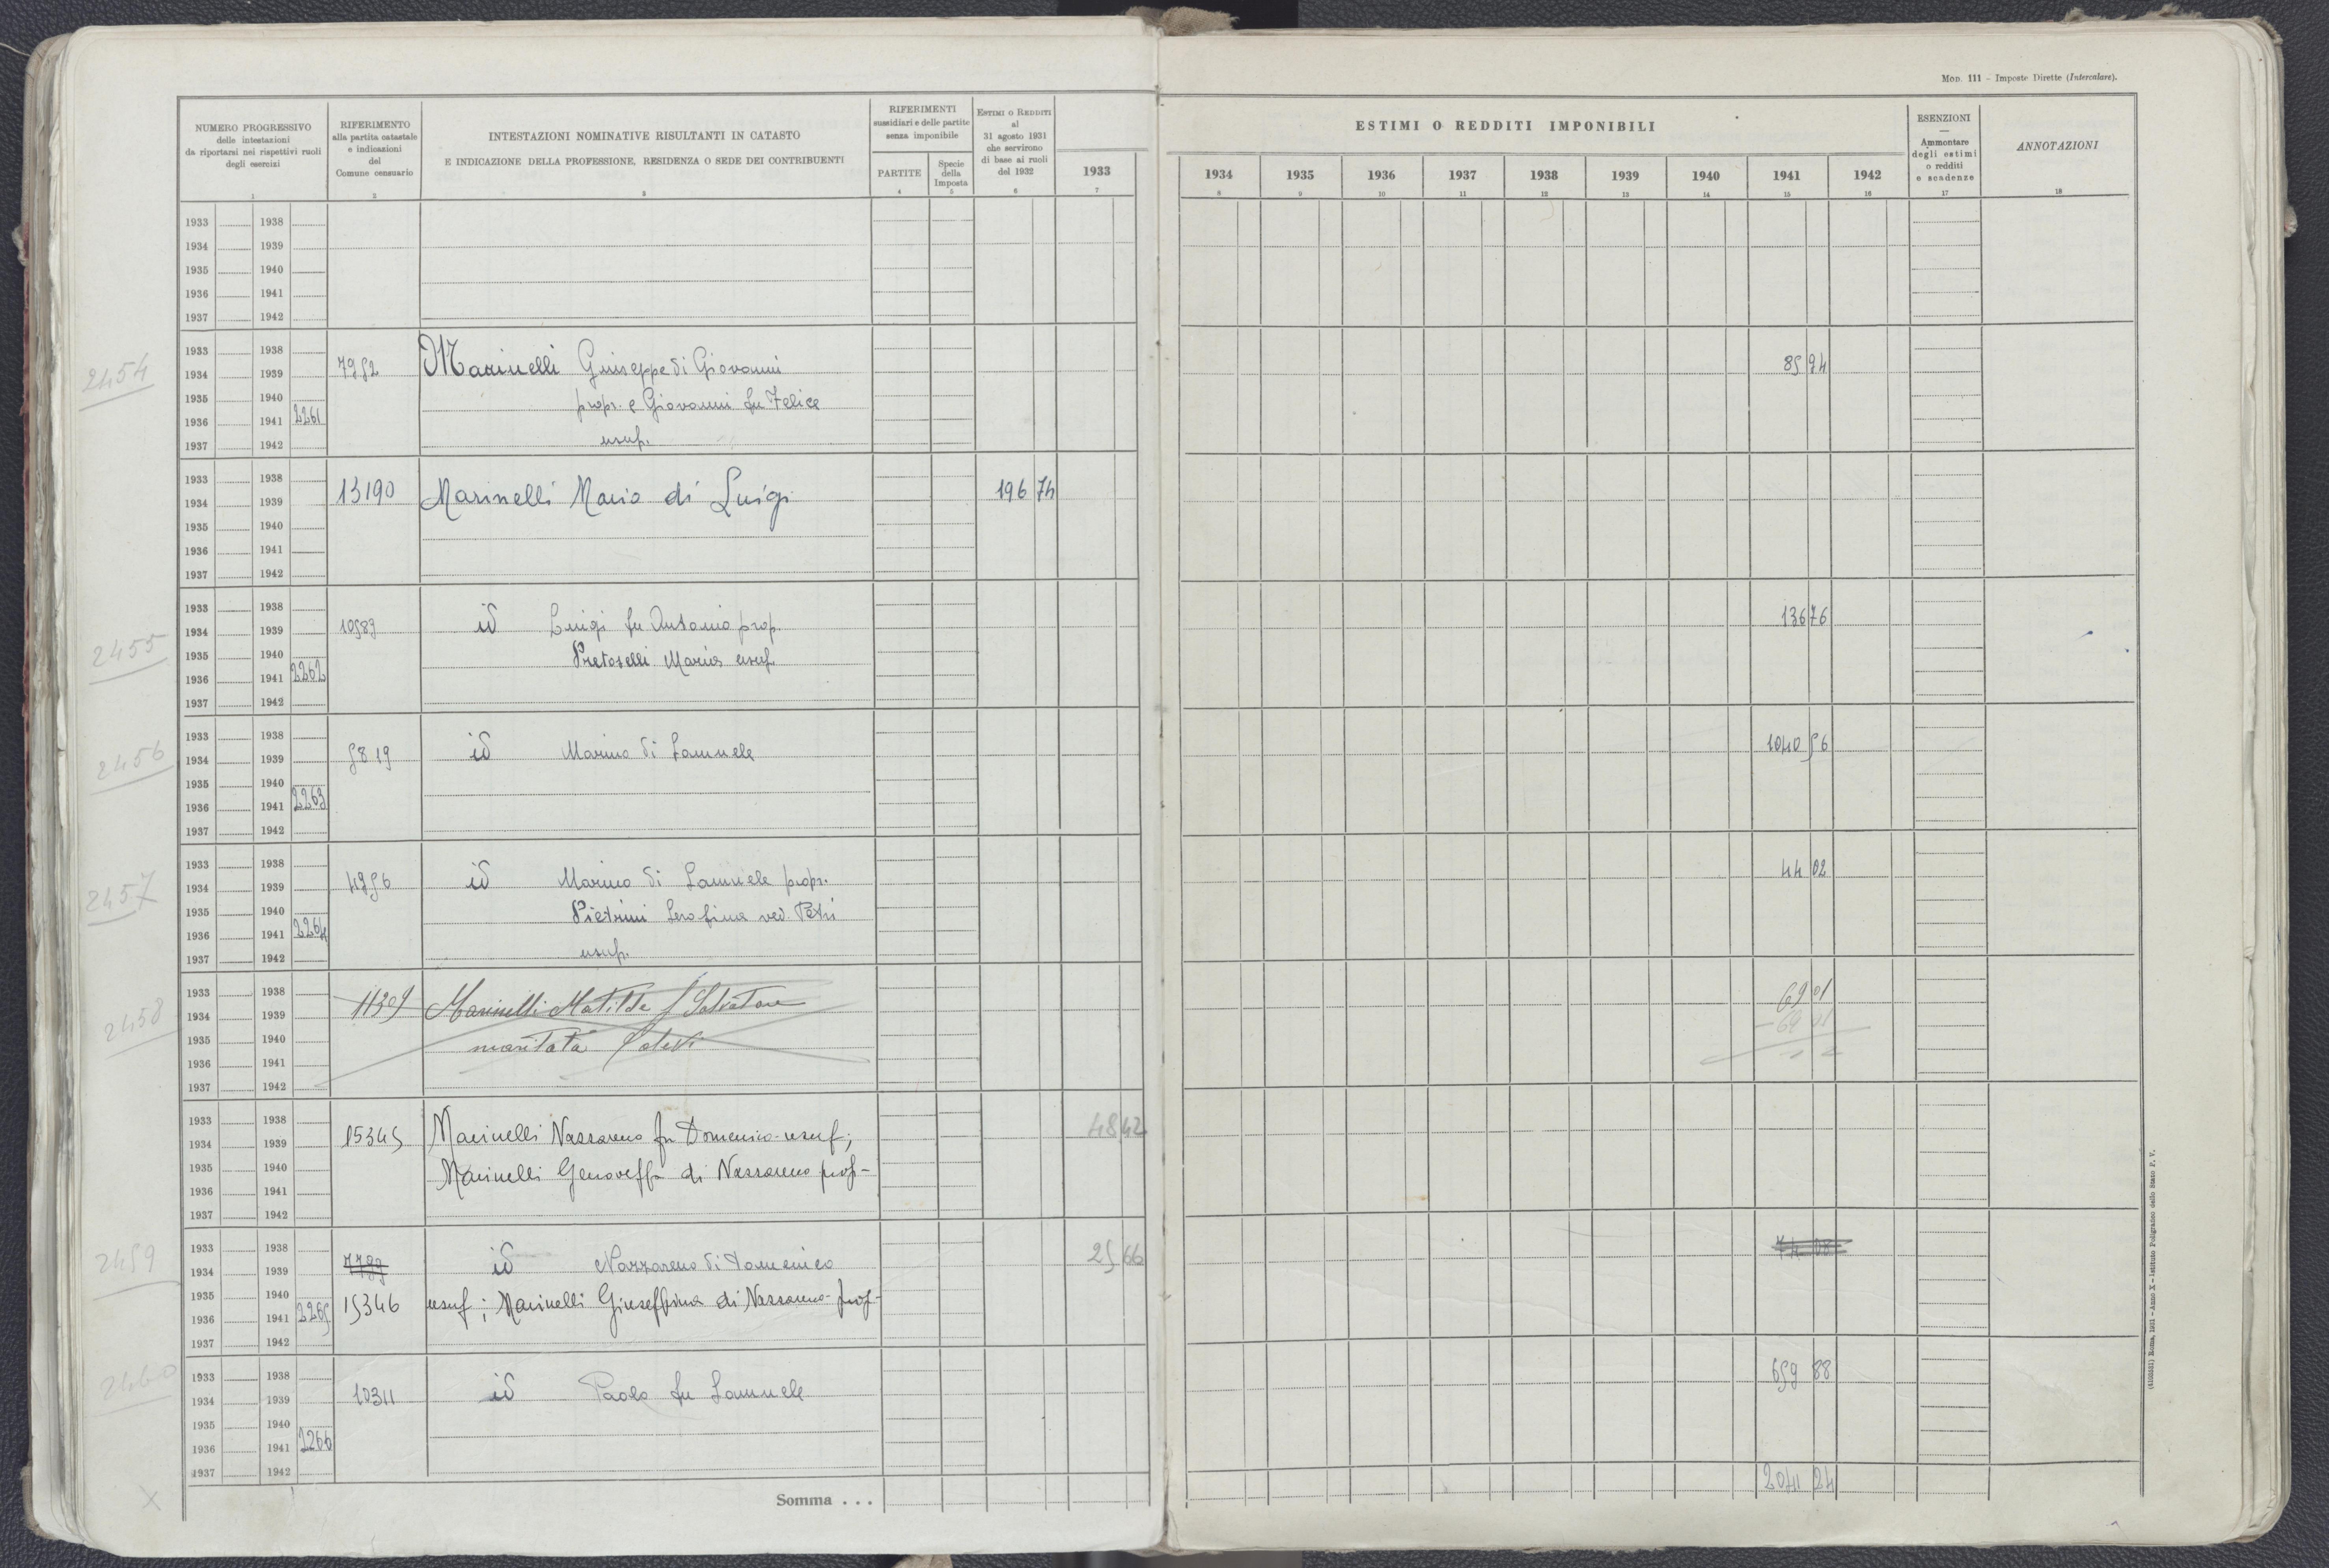 Mod. 111 – Imposte Dirette (Intercalare).
NUMERO PROGRESSIVO
delle intestazioni
da riportarsi nei rispettivi ruoli
degli esercizi
1
RIFERIMENTO
alla partita catastale
e indicazioni
del
Comune censuario
2
INTESTAZIONI NOMINATIVE RISULTANTI IN CATASTO
E INDICAZIONE DELLA PROFESSIONE, RESIDENZA O SEDE DEI CONTRIBUENTI
3
RIFERIMENTI
sussidiari e delle partite
senza imponibile
PARTITE
4
Specie
della
Imposta
5
Estimi o Redditi
al
31 agosto 1931
che servirono
di base ai ruoli
del 1932
6
1933
7
ESTIMI O REDDITI IMPONIBILI
1934 1935 1936 1937 1938 1939 1940 1941 1942
8 9 10 11 12 13 14 15 16
ESENZIONI
—
Ammontare
degli estimi
o redditi
e scadenze
17
ANNOTAZIONI
18
1933 1938
1934 1939
1935 1940
1936 1941
1937 1942
2454
1933 1938
1934 1939 7952 Marinelli Giuseppe di Giovanni 85 94
1935 1940 propr. e Giovanni fu Felice
1936 1941 2261
1937 1942 usuf.
1933 1938
1934 1939 13190 Marinelli Mario di Luigi 196 74
1935 1940
1936 1941
1937 1942
2455
1933 1938
1934 1939 10589 id Luigi fu Antonio prop. 136 76
1935 1940 Maria usuf.
1936 1941 2262
1937 1942
2456
1933 1938
1934 1939 5819 id Marino di Samuele 1040 56
1935 1940
1936 1941 2263
1937 1942
2457
1933 1938
1934 1939 4956 id Marino di Samuele propr. 44 02
1935 1940 Pietrini Serafina ved. Petri
1936 1941 2264
1937 1942 usuf.
2458
1933 1938
1934 1939 11305 Marinelli Matilde f Salvatore 69 01
1935 1940 maritata 69 01
1936 1941
1937 1942
1933 1938
1934 1939 15345 Marinelli Nazzareno fu Domenico usuf; 48 42
1935 1940 Marinelli Genoveffa di Nazzareno prop-
1936 1941
1937 1942
2459
1933 1938
1934 1939 7789 id Nazzareno di Domenico 25 66 74 08
1935 1940 15346 usuf; Marinelli Giuseppina di Nazzareno prop-
1936 1941 2265
1937 1942
2460
1933 1938
1934 1939 10311 id Paolo fu Samuele 659 88
1935 1940
1936 1941 2266
1937 1942
X
Somma . . . 2041 24
(4103331) Roma, 1931 – Anno X – Istituto Poligrafico dello Stato P. V.